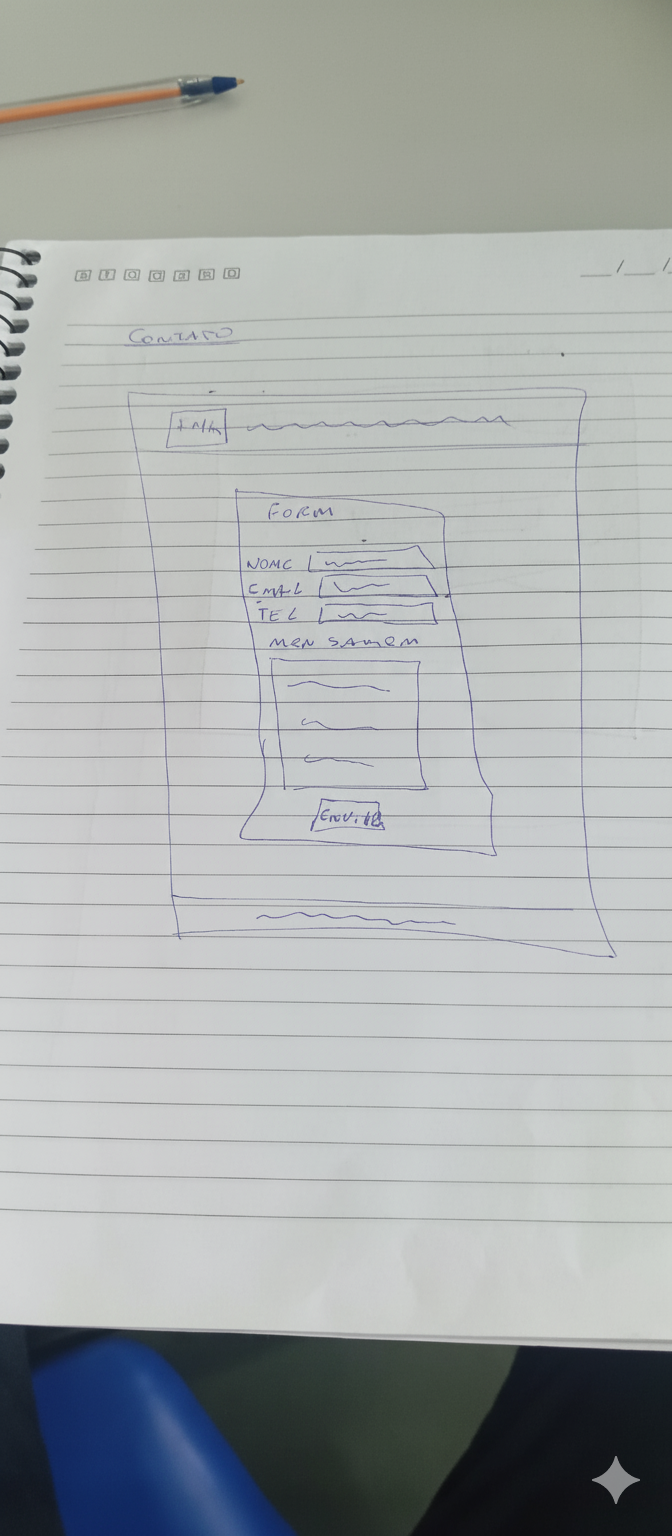 CONTATO
FORM
NOME
EMAIL
TEL
MENSAMEM
ENVIAR